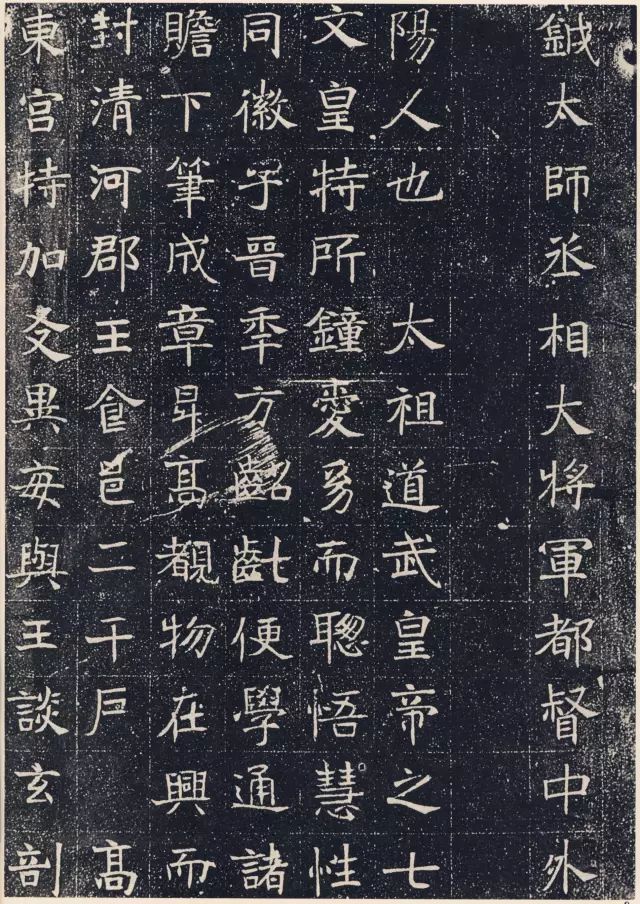 鉞太師丞相大將軍都督中外
陽人也　太祖道武皇帝之七
文皇特所鐘愛幼而聰悟慧性
同徽子晉年方齠齔便學通諸
瞻下筆成章昇高覩物在興而
封清河郡王食邑二千戶　高
東宮特加友異每與王談玄剖